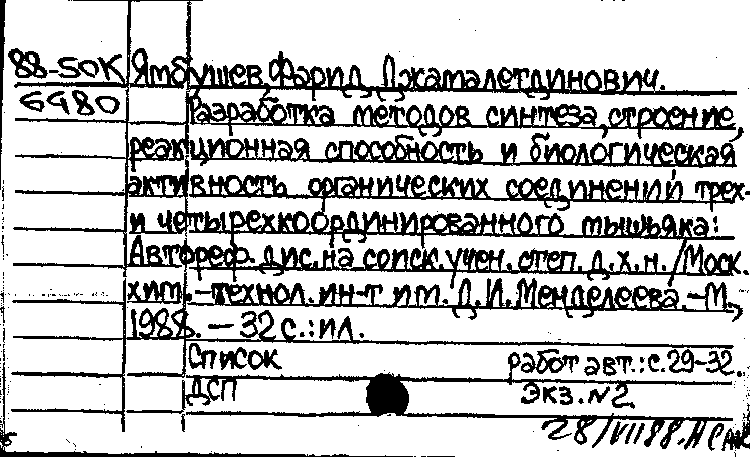 88-50К Ямбушев, Фарид Джамалетдинович.
6480 Разработка методов синтеза, строение,
реакционная способность и биологическая
активность органических соединений трех-
и четырехкоординированного мышьяка:
Автореф. дис. на соиск. учен. степ. д. х. н. /Моск.
хим.-технол. ин-т им. Д. И. Менделеева. -М.,
1988. - 32 с.: ил.
Список работ авт.: с. 29-32.
ДСП Экз. N2
28/VII 88.